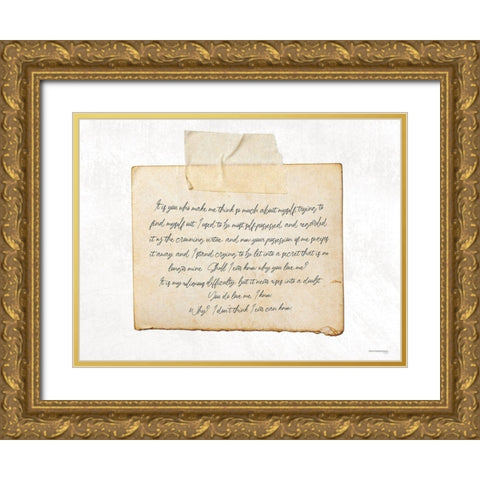 It is you who make me think so much about myself, trying to
find myself out. I used to be most self-possessed, and regarded
it as the crowning virtue and now your possession of me sweeps
it away, and I stand crying to be let into a secret that is no
longer mine. Shall I ever know why you love me?
It is my difficulty; but it never rises into a doubt.
You do love me, I know.
Why? I don't think I ever can know.